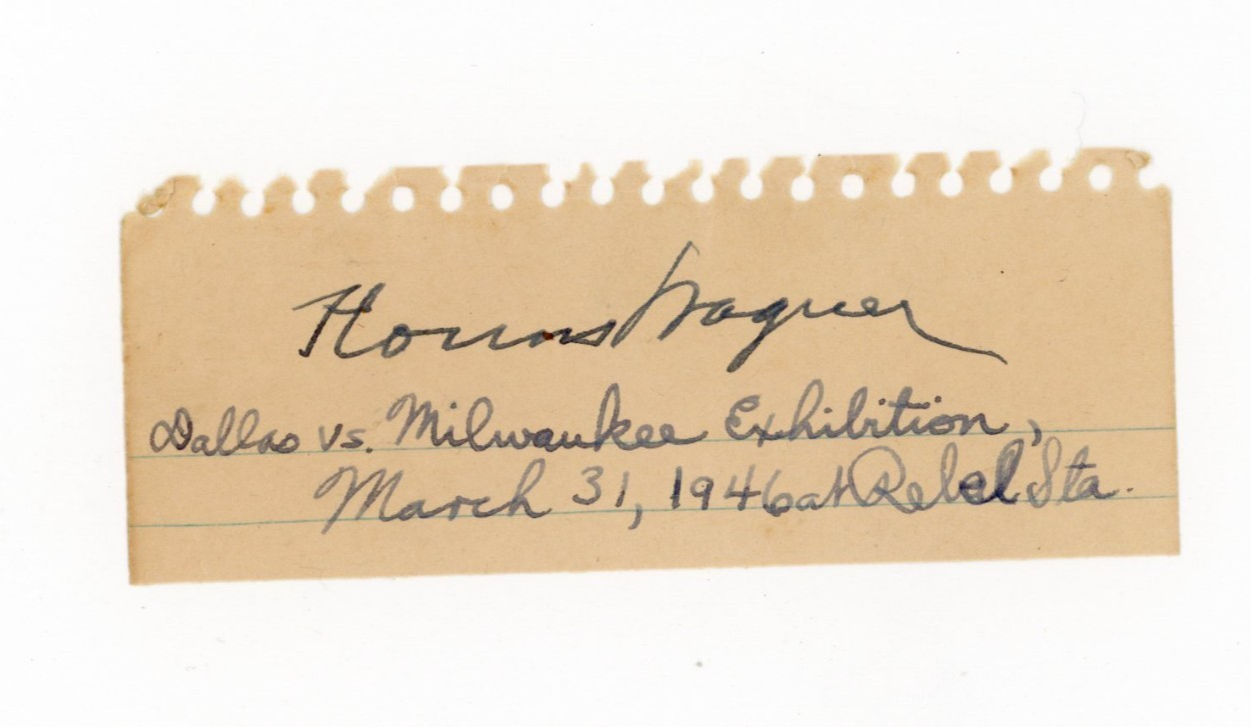 Honus Wagner
Dallas vs. Milwaukee Exhibition,
March 31, 1946 at Rebel Sta.